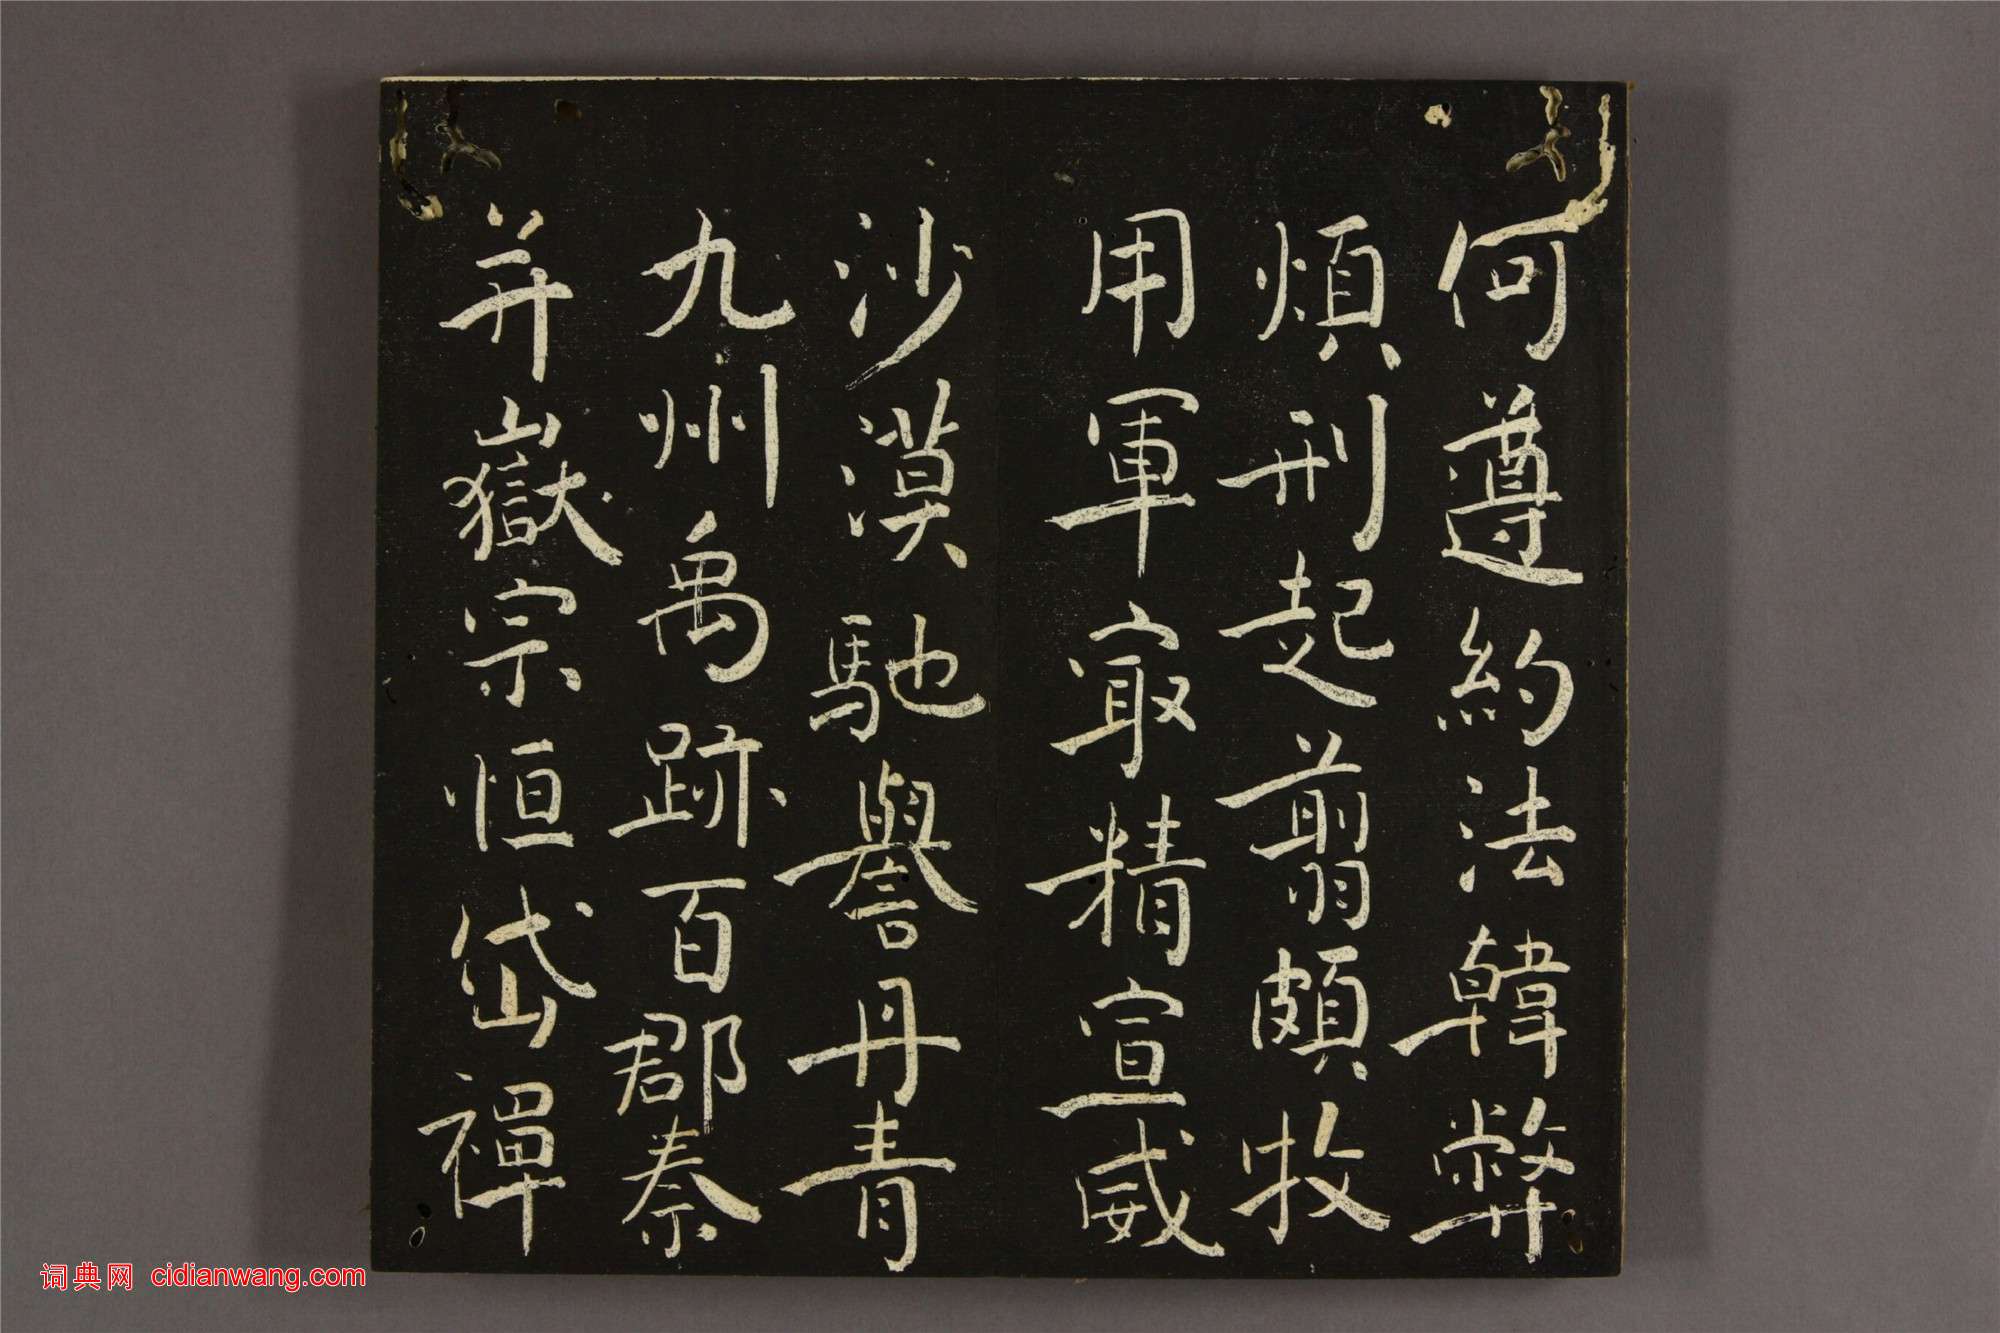 何遵約法韓弊
煩刑起翦頗牧
用軍冣精宣威
沙漠馳譽丹青
九州禹跡百郡秦
并嶽宗恒岱禪
词典网 cidianwang.com